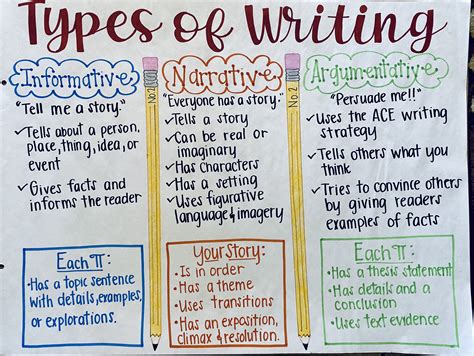 Types of Writing
Informative
"Tell me a story."
✓Tells about a person,
place, thing, idea, or
event
✓Gives facts and
informs the reader
Each ¶:
•Has a topic sentence
with details, examples,
or explorations.
No.2
Narrative
"Everyone has a story."
✓Tells a story
✓Can be real or
imaginary
✓Has characters
✓Has a setting
✓Uses figurative
language & imagery
Your Story:
•Is in order
•Has a theme
•Uses transitions
•Has an exposition,
climax & resolution.
No.2
Argumentative
"Persuade me!!"
✓Uses the ACE writing
strategy
✓Tells others what you
think
✓Tries to convince others
by giving readers
examples of facts
Each ¶:
•Has a thesis statement
•Has details and a
conclusion
•Uses text evidence